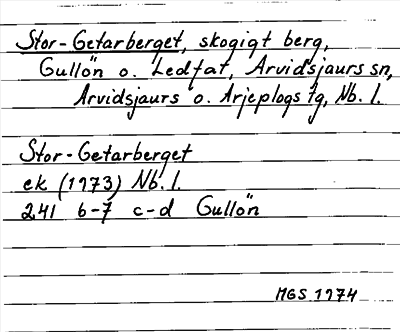 Stor-Getarberget, skogigt berg,
Gullön o. Ledfat, Arvidsjaurs sn,
Arvidsjaurs o. Arjeplogs tg, Nb. l.
Stor-Getarberget
ek (1973) Nb. l.
241 6-7 c-d Gullön
MGS 1974